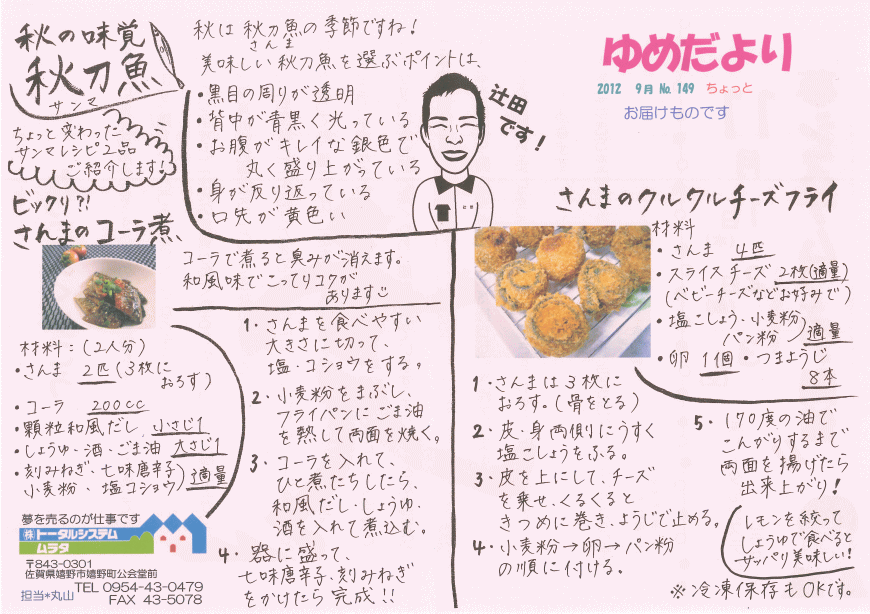 秋の味覚
秋刀魚
サンマ
ちょっと変わった
サンマレシピ2品
ご紹介します!
秋は秋刀魚の季節ですね!
さんま
美味しい秋刀魚を選ぶポイントは、
・黒目の周りが透明
・背中が青黒く光っている
・お腹がキレイな銀色で
丸く盛り上がっている
・身が反り返っている
・口先が黄色い
辻田
です!
ゆめだより
2012 9月 No.149 ちょっと
お届けものです
ビックリ?!
さんまのコーラ煮
コーラで煮ると臭みが消えます。
和風味でこってりコクが
あります
材料:(2人分)
・さんま 2匹(3枚に
おろす)
・コーラ 200cc
・顆粒和風だし 小さじ1
・しょうゆ・酒・ごま油 大さじ1
・刻みねぎ・七味唐辛子
小麦粉、塩コショウ)適量
1・さんまを食べやすい
大きさに切って、
塩・コショウをする。
2・小麦粉をまぶし、
フライパンにごま油
を熱して両面を焼く。
3・コーラを入れて、
ひと煮たちしたら、
和風だし・しょうゆ・
酒を入れて煮込む。
4・器に盛って、
七味唐辛子、刻みねぎ
をかけたら完成!!
さんまのクルクルチーズフライ
材料
・さんま 4匹
・スライスチーズ 2枚(適量)
(ベビーチーズなどお好みで)
・塩こしょう・小麦粉
パン粉 )適量
・卵 1個・つまようじ
8本
1・さんまは3枚に
おろす。(骨をとる)
2・皮・身両側にうすく
塩こしょうをふる。
3・皮を上にして、チーズ
を乗せ、くるくると
きつめに巻き、ようじで止める。
4・小麦粉→卵→パン粉
の順に付ける。
5・170度の油で
こんがりするまで
両面を揚げたら
出来上がり!
レモンを絞って
しょうゆで食べると
サッパリ美味しい!
※冷凍保存もOKです。
夢を売るのが仕事です
㈱トータルシステム
ムラタ
〒843-0301
佐賀県嬉野市嬉野町公会堂前
TEL 0954-43-0479
担当*丸山 FAX 43-5078